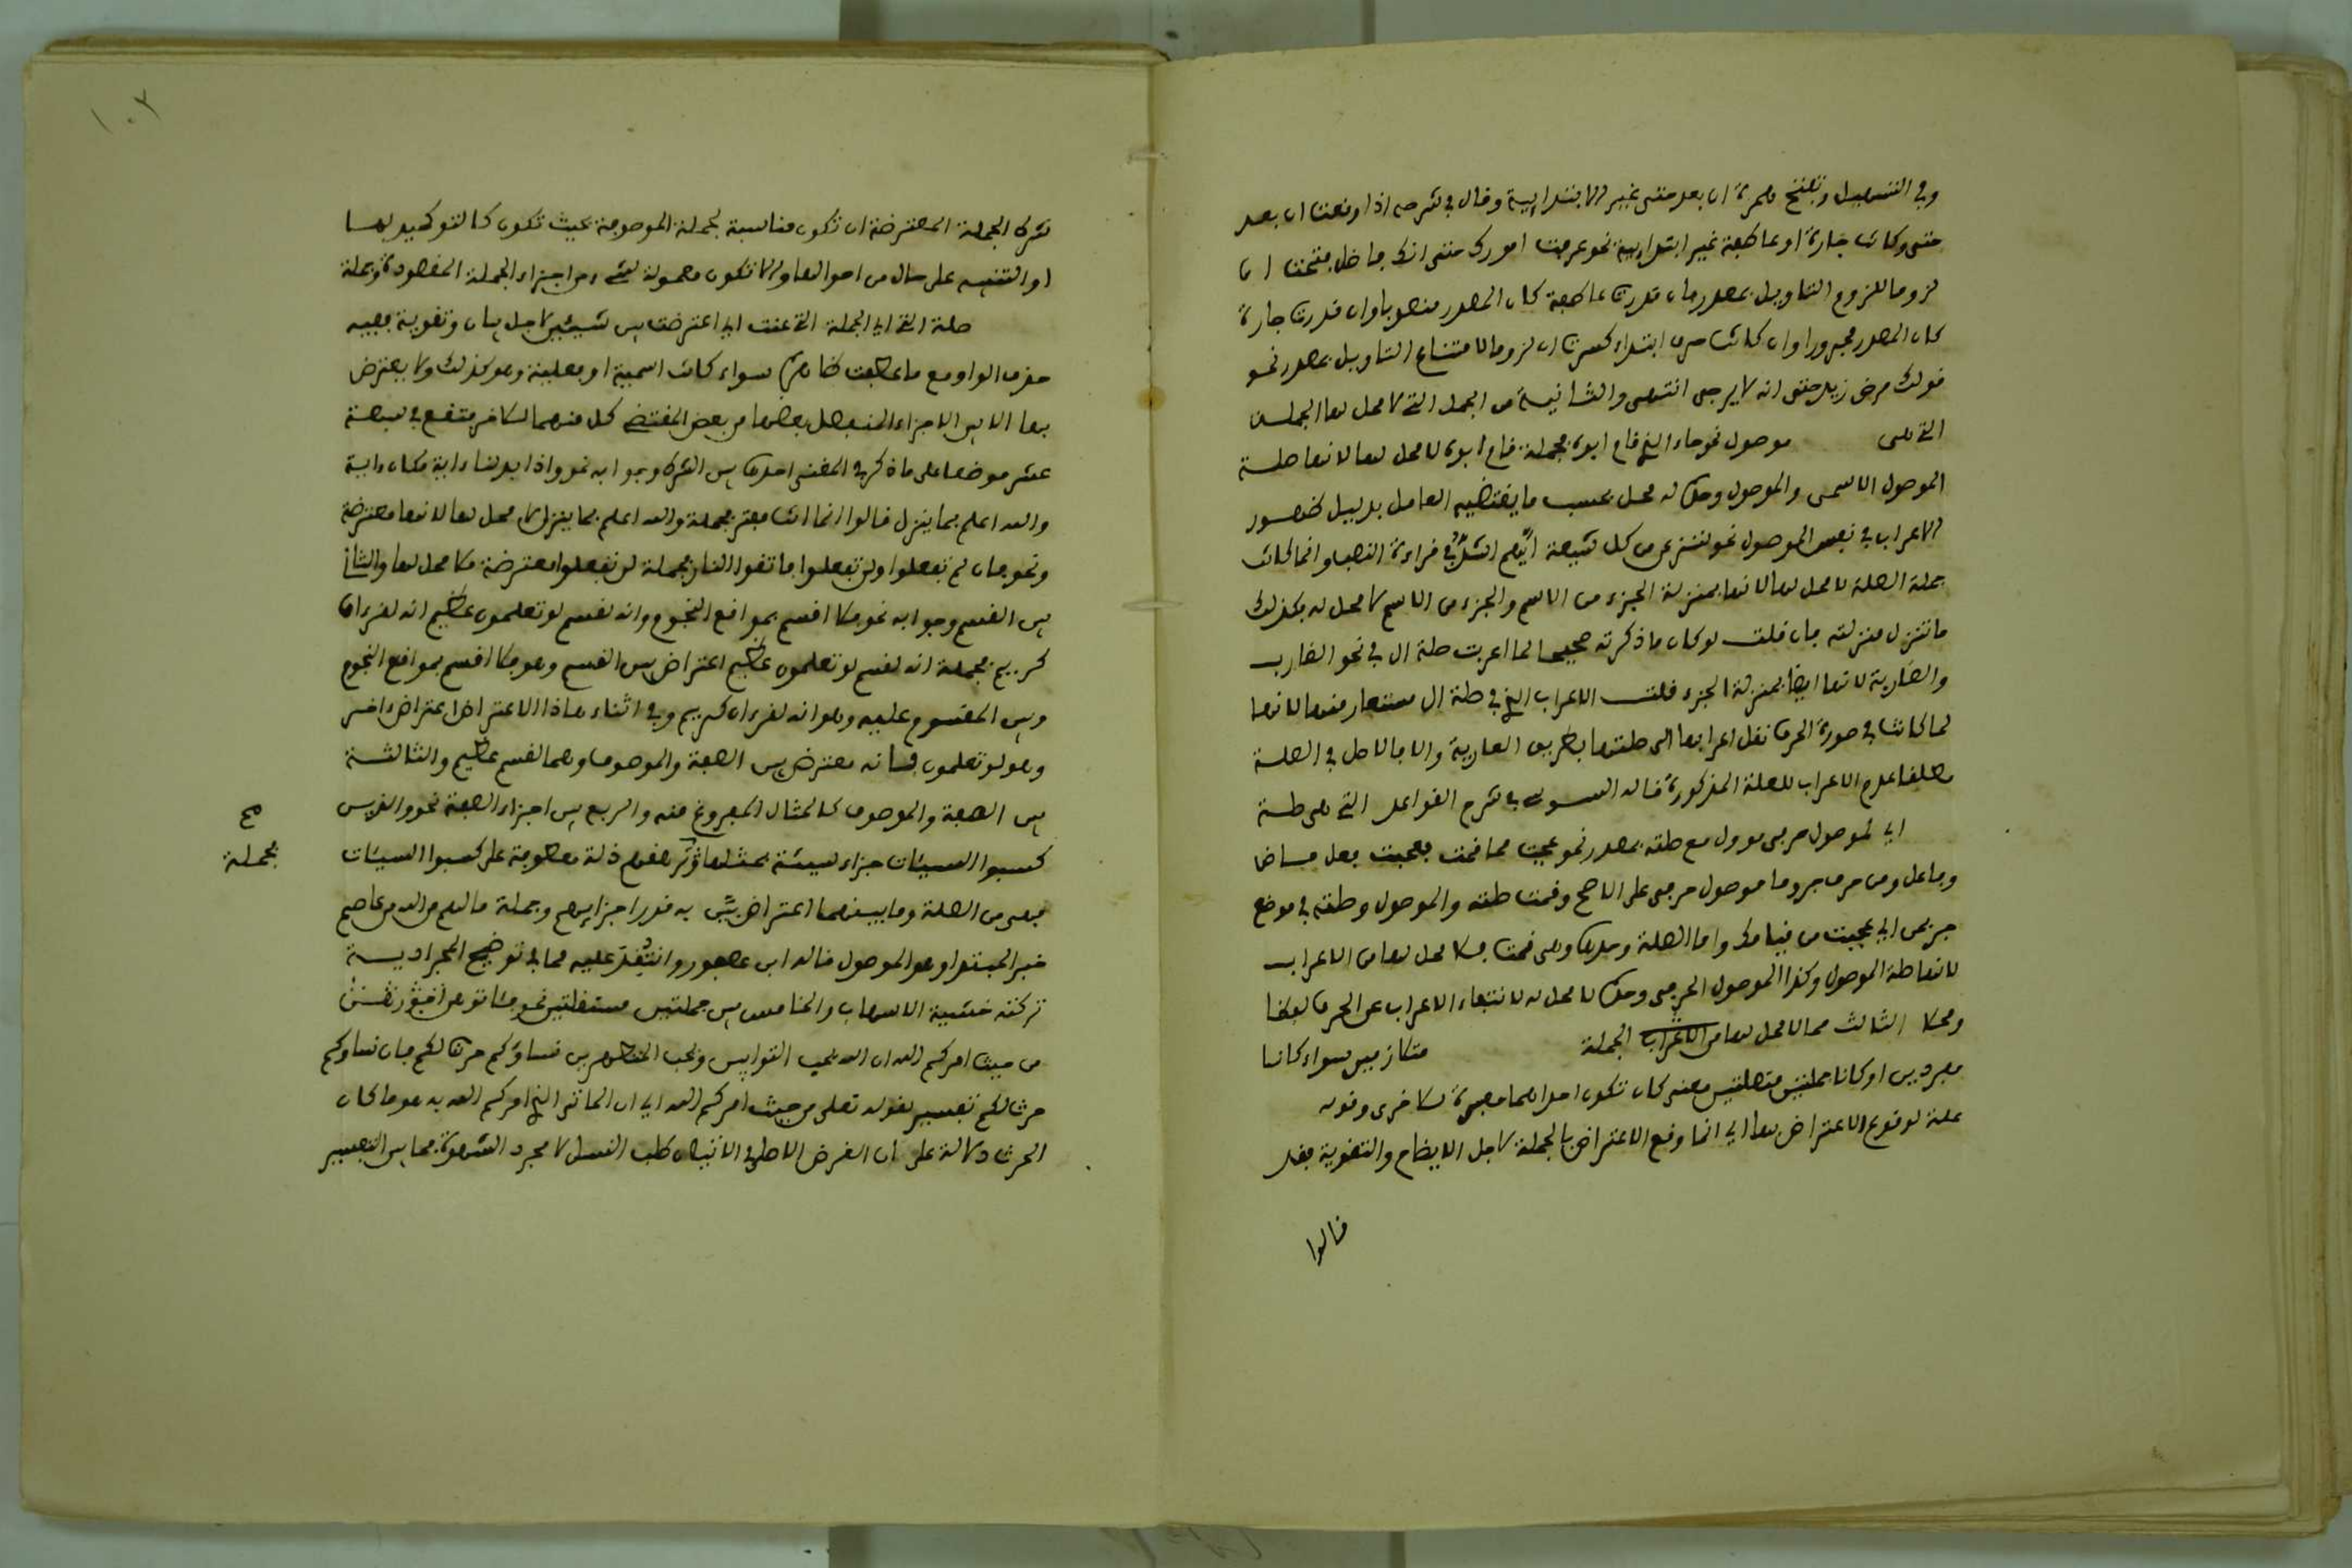 وفي التسهيل وتفتح همزة ان بعد حتى غير الابتدائية وقال في شرحه اذا وقعت ان بعد
حتى وكانت جارة او عاطفة غير ابتدائية نحو عرفت امورك حتى انك فاضل فتحت ان
لزوما للزوم التاويل بمصدر فان قدرت عاطفة كان المصدر منصوبا وان قدرت جارة
كان المصدر مجرورا وان كانت حرف ابتداء كسرت ان لزوما لامتناع التاويل بمصدر نحو
قولك مرض زيد حتى انه لا يرجى انتهى والثانية من الجمل التي لا محل لها الجملة
التي هي موصول نحو جاء الذي قام ابوه فجملة قام ابوه لا محل لها لانها صلة
الموصول الاسمى والموصول وحده له محل بحسب ما يقتضيه العامل بدليل ظهور
الاعراب في نفس الموصول نحو لننزعن من كل شيعة ايهم اشد في قراءة النصب وانما كانت
جملة الصلة لا محل لها لانها بمنزلة الجزء من الاسم والجزء من الاسم لا محل له فكذلك
ما تنزل منزلته فان قلت لو كان ما ذكرته صحيحا لما اعربت صلة ال في نحو الضارب
والضاربة لانها ايضا بمنزلة الجزء قلت الاعراب الذي في صلة ال مستعار منها لانها
لما كانت في صورة الحرف نقل اعرابها الى صلتها بطريق العارية والا فالاصل في الصلة
مطلقا عدم الاعراب للعلة المذكورة قاله في شرح القواعد التي هي صلة
اي لموصول حرفى موول مع صلته بمصدر نحو عجبت مما قمت فعجبت فعل ماض
وفاعل ومن حرف جر وما موصول حرفى على الاصح وقمت صلته والموصول وصلته في موضع
جر بمن اي عجبت من قيامك واما الصلة وحدها وهي قمت فلا محل لها من الاعراب
لانها صلة الموصول وكذا الموصول الحرفي وحده لا محل له لانتفاء الاعراب عن الحرف لفظا
ومحلا الثالث مما لا محل لها من الاعراب الجملة متلازمين سواء كانا
مفردين او كانا جملتين متصلتين معنى كان تكون احداهما مفسرة للاخرى وقوله
علة لوقوع الاعتراض بها اي انما وقع الاعتراض بالجملة لاجل الايضاح والتقوية فقد
قالوا
١٠٢
شرط الجملة المعترضة ان تكون مناسبة لجملة الموصوفة بحيث تكون كالتوكيد لها
او التنبيه على حال من احوالها والا تكون معمولة لشيء من اجزاء الجملة المقصودة وجملة
صلة التي اي الجملة التي عنت اي اعترضت بين شيئين لاجل بيان وتقوية فيه
حذف الواو مع ما عطفت سواء كانت اسمية او فعلية وهو كذلك ولا يعترض
بها الا بين الاجزاء المنفصل بعضها من بعض المقتضى كل منهما للاخر فتقع في سبعة
عشر موضعا على ما ذكر في المغنى احدها بين الشرط وجوابه نحو واذا بدلنا ءاية مكان ءاية
والله اعلم بما ينزل قالوا انما انت مفتر فجملة والله اعلم بما ينزل لا محل لها لانها معترضة
ونحو فان لم تفعلوا ولن تفعلوا فاتقوا النار فجملة لن تفعلوا معترضة فلا محل لها والثاني
بين القسم وجوابه نحو فلا اقسم بمواقع النجوم وانه لقسم لو تعلمون عظيم انه لقرءان
كريم فجملة انه لقسم لو تعلمون عظيم اعتراض بين القسم وهو فلا اقسم بمواقع النجوم
وبين المقسوم عليه وهو انه لقرءان كريم وفي اثناء هاذا الاعتراض اعتراض اخر
وهو لو تعلمون فانه معترض بين الصفة والموصوف وهما لقسم عظيم والثالثة
بين الصفة والموصوف كالمثال المفروغ منه والربع بين اجزاء الصفة نحو والذين
كسبوا السيئات جزاء سيئة بمثلها وترهقهم ذلة معطوفة على كسبوا السيئات
صح
فجملة
فهي من الصلة وما بينهما اعتراض بين به قدر اجزايهم وجملة ما لهم من الله من عاصم
خبر المبتدا وهو الموصول قاله ابن عصفور وانتقد عليه مما في توضيح
تركته خشية الاسهاب والخامس بين جملتين مستقلتين نحو فاتوهن
من حيث امركم الله ان الله يحب التوابين ويحب المتطهرين نساؤكم حرث لكم فان نساؤكم
حرث لكم تفسير لقوله تعلى من حيث امركم الله اي ان الماتى الذي امركم الله به هو مكان
الحرث دلالة على ان الغرض الاصلى في الاتيان طلب النسل لا مجرد الشهوة فما بين التفسير